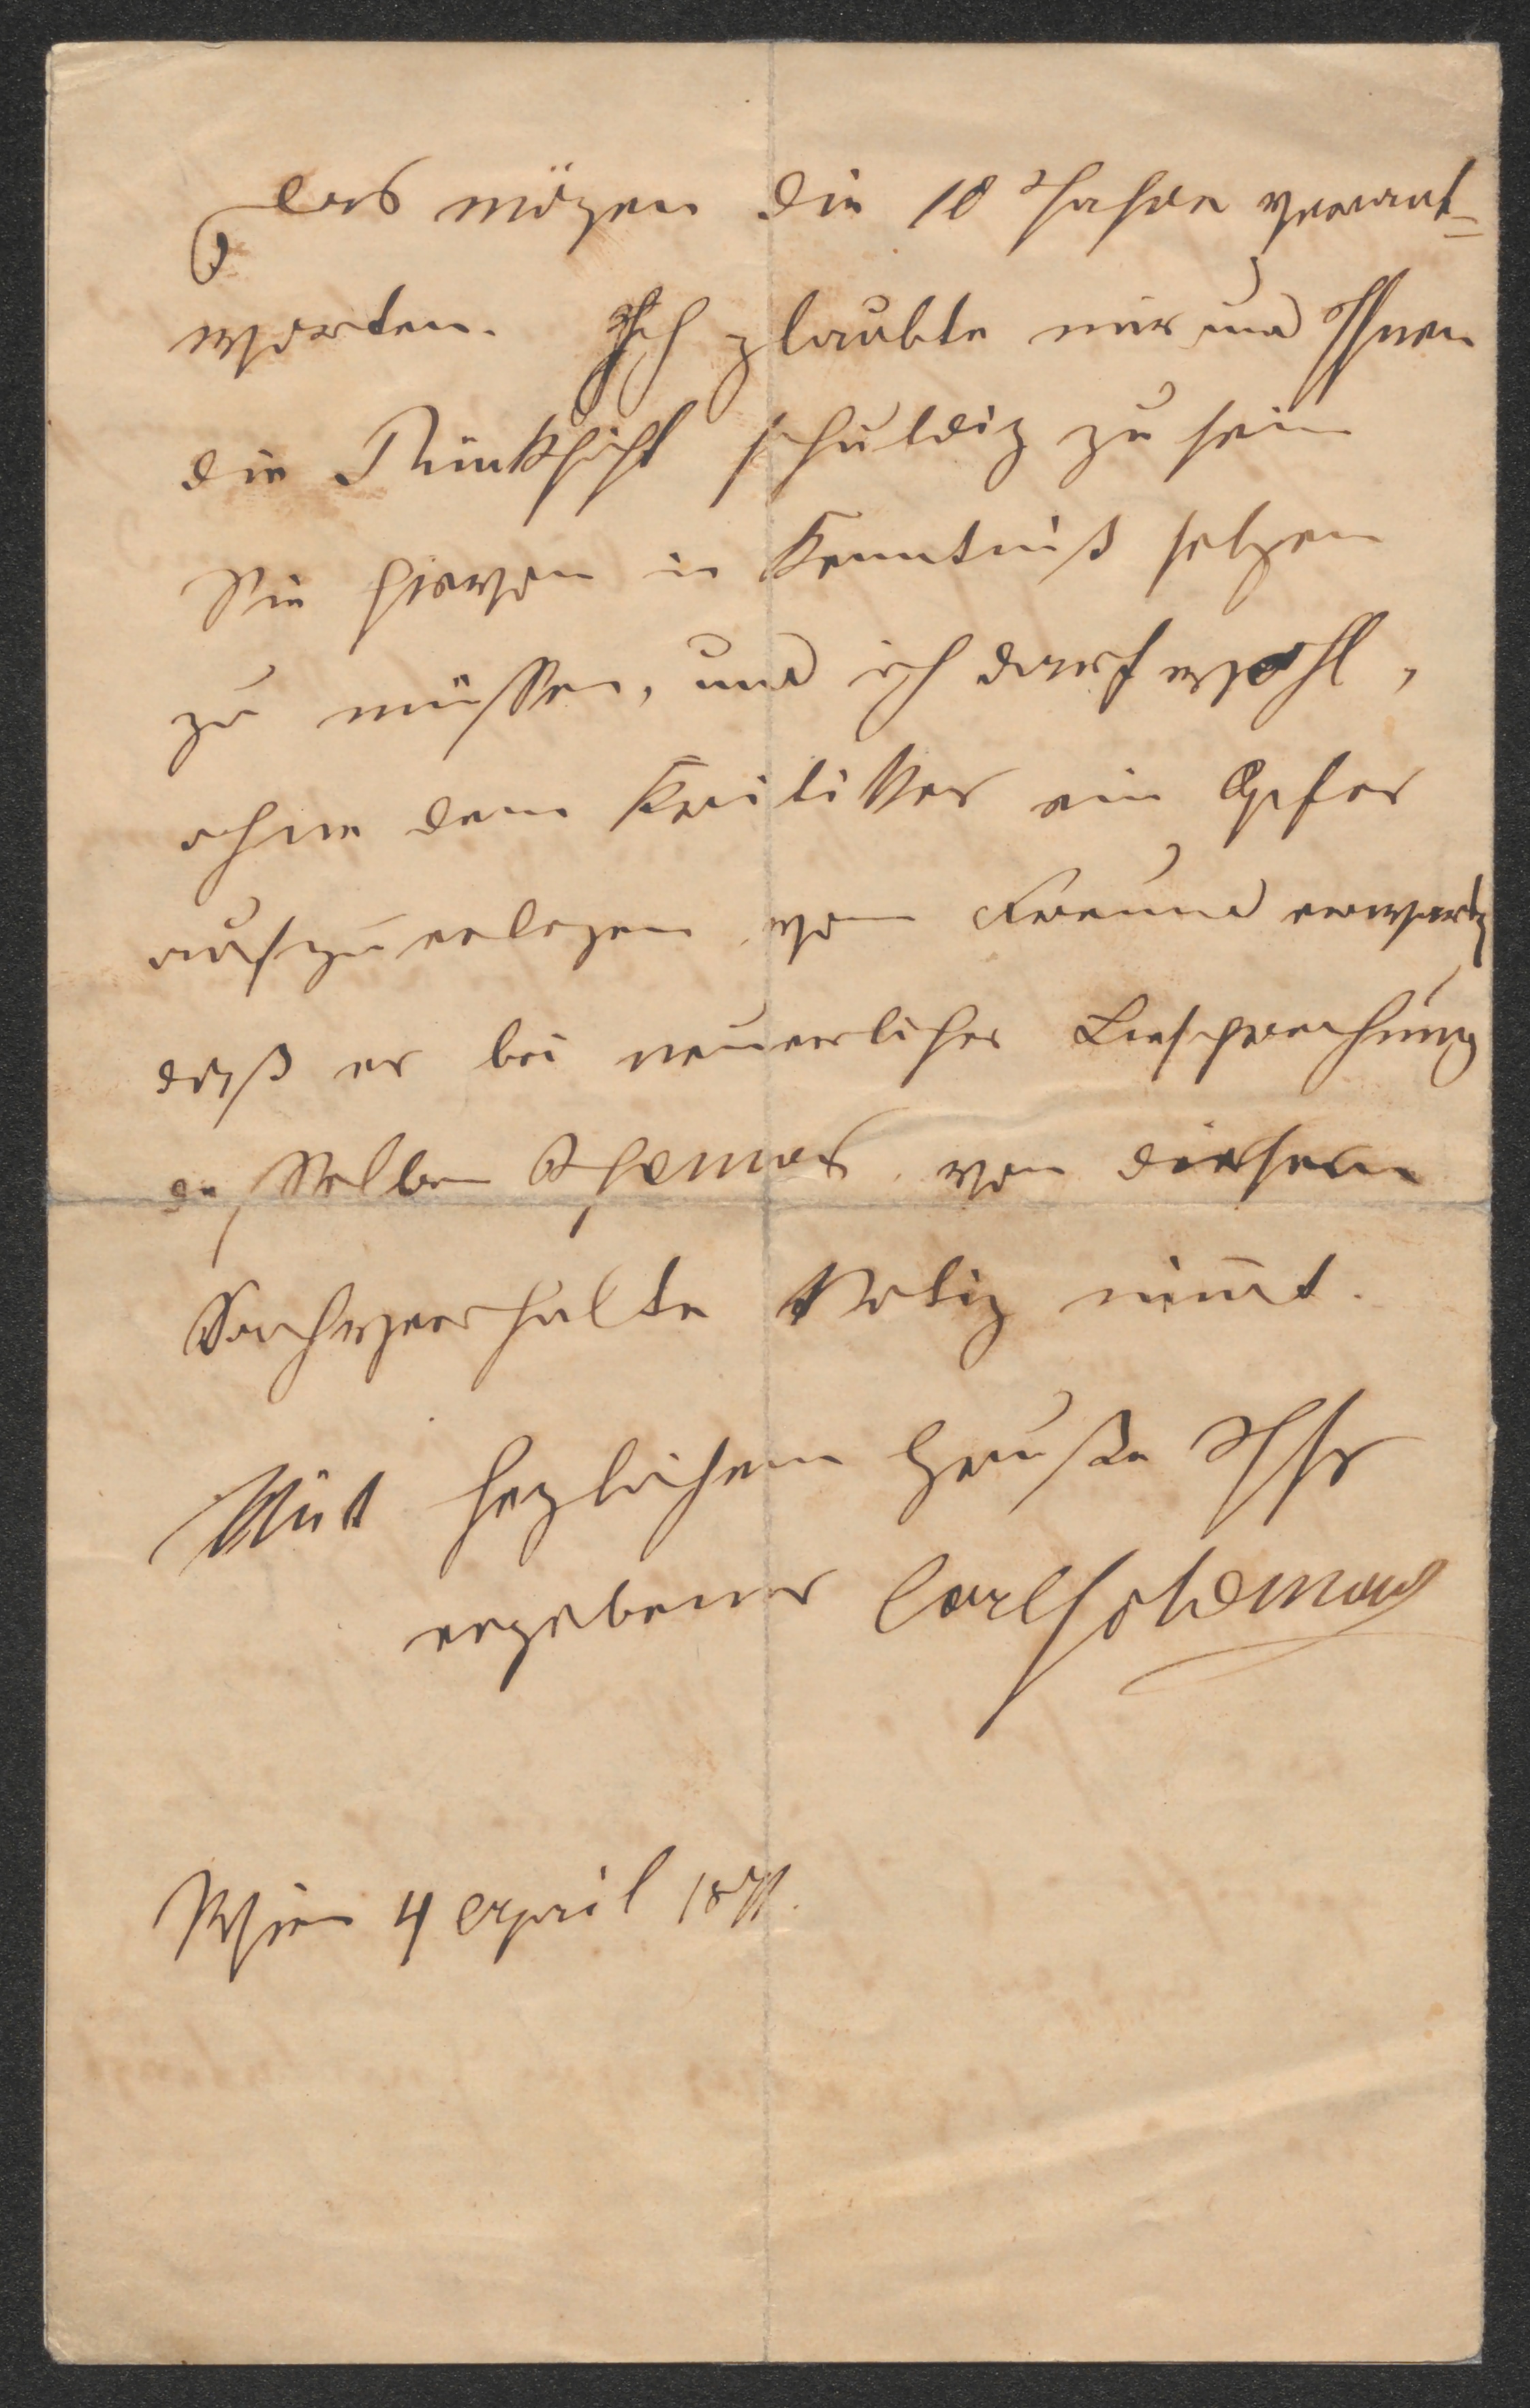 das mögen die 10 Jahre verant-
worten. Ich glaubte mir und Ihnen
die Rücksicht schuldig zu sein
Sie hievon in Kenntniß setzen
zu müssen, und ich darf wohl,
ohne dem Kritiker ein Opfer
aufzuerlegen vom Freund erwarten
daß er bei neuerlicher Besprechung
desselben Themas von diesem
Sachverhalte Notiz nim̄t.
Mit herzlichem Gruße Ihr
ergebener Carl
Wien 4 April 1871.